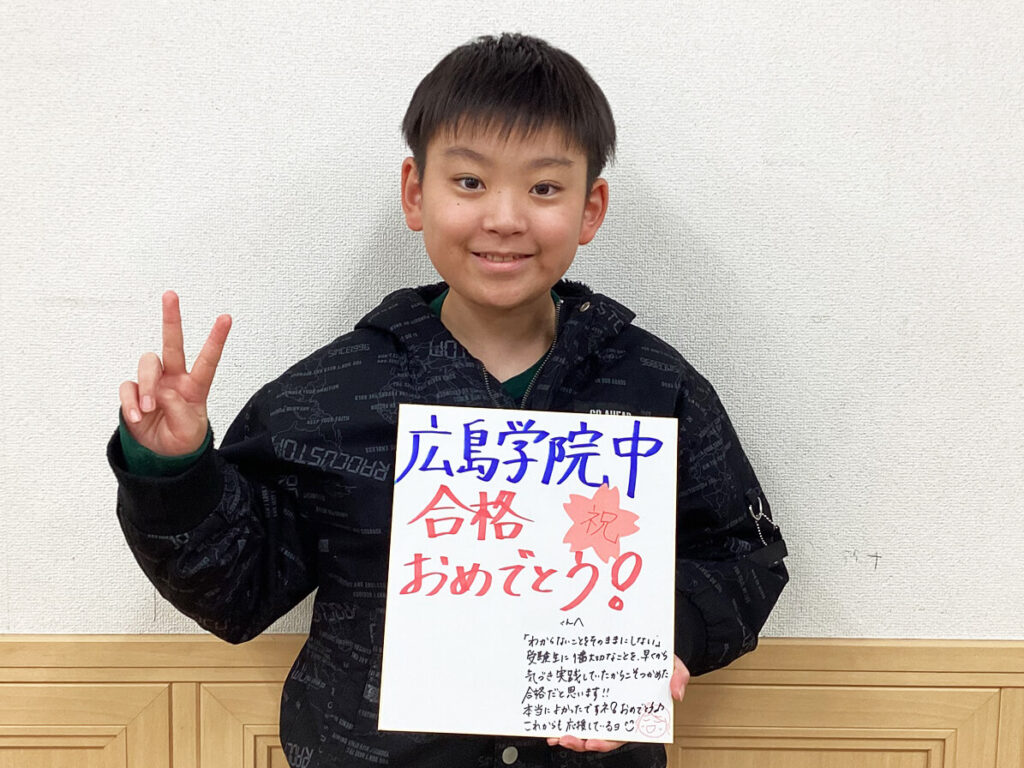 広島学院中
合格
祝
おめでとう!
くんへ
「わからないことをそのままにしない」
受験生に1番大切なことを、早くから
気づき実践していたからこそつかめた
合格だと思います!!
本当によかったですネ!おめでとう♪
これからも応援しているョ
GO AHEAD